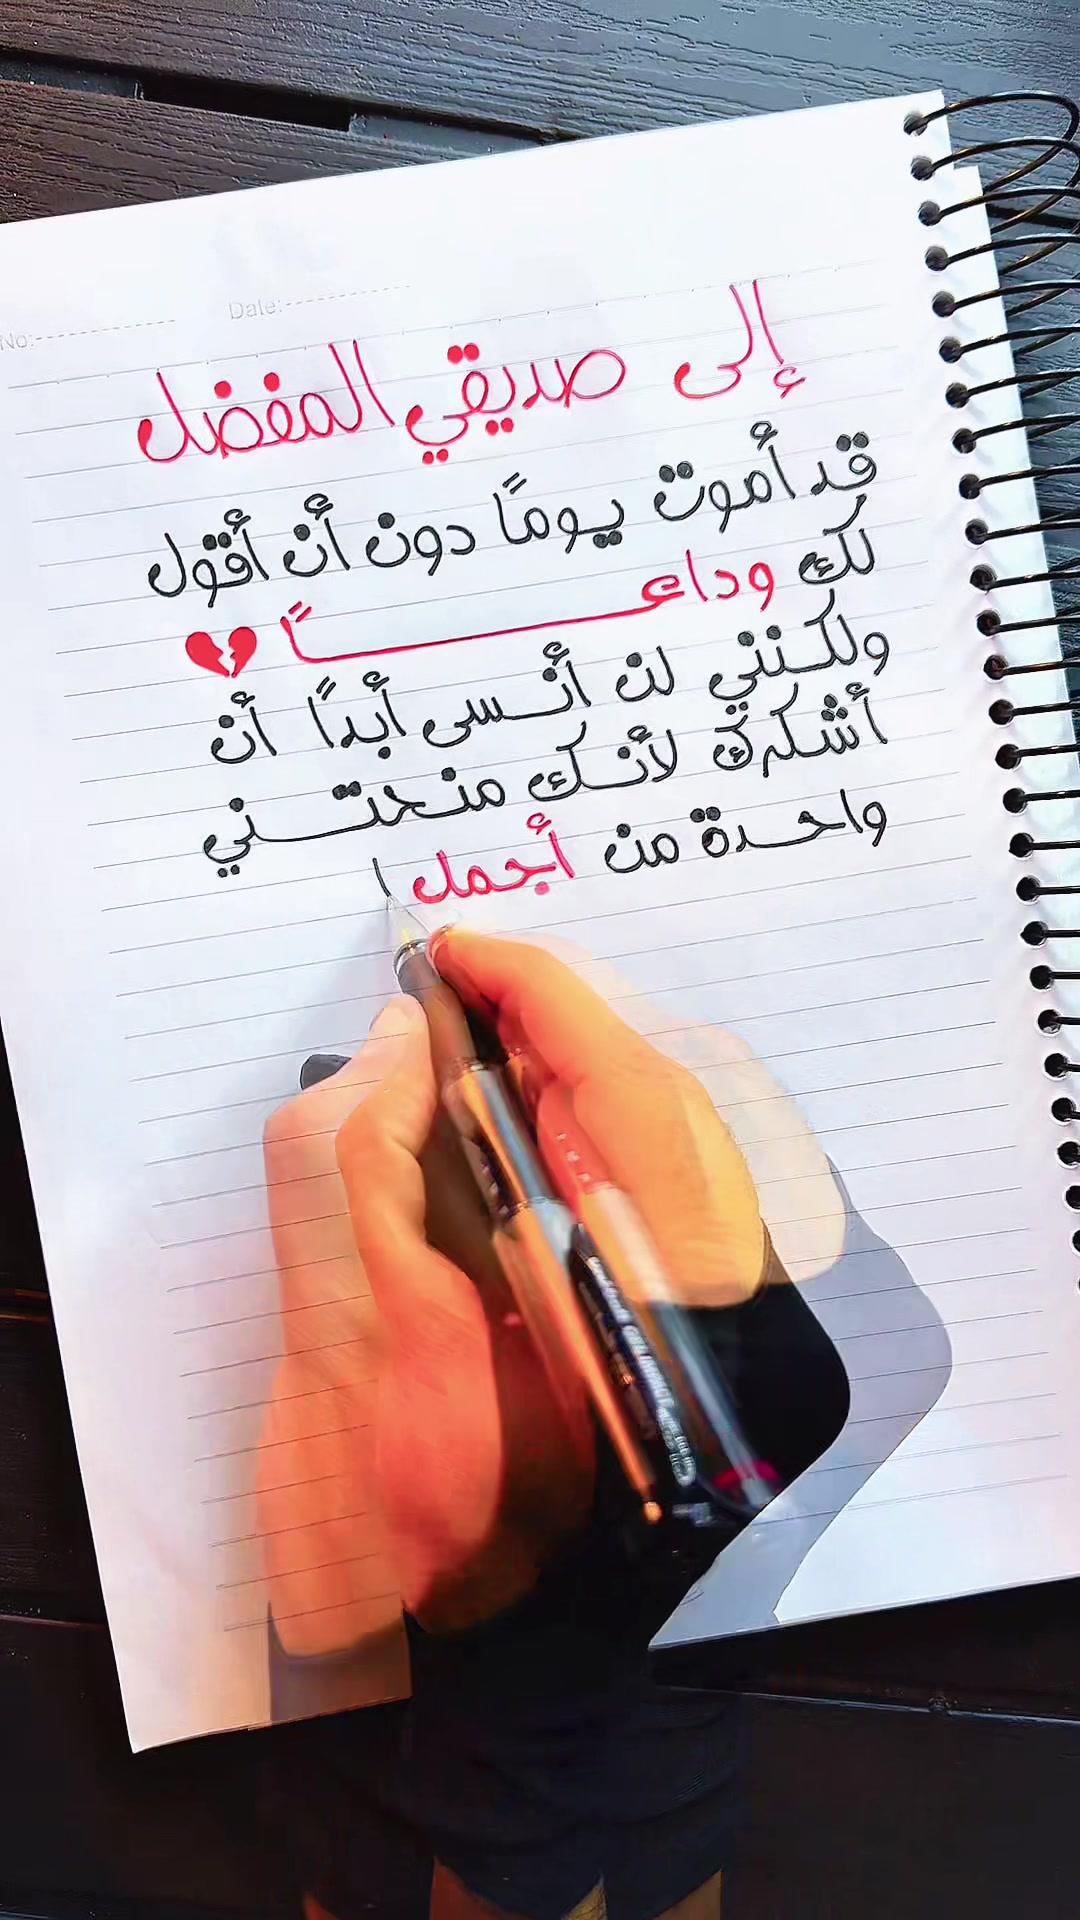 No: Date:
إلى صديقي المفضل
قد أموت يومًا دون أن أقول
لك وداعـــــــــاً 💔
ولكـنني لن أنـسى أبدًا أن
أشكرك لأنـك منحتـــني
واحـدة من أجمل ا